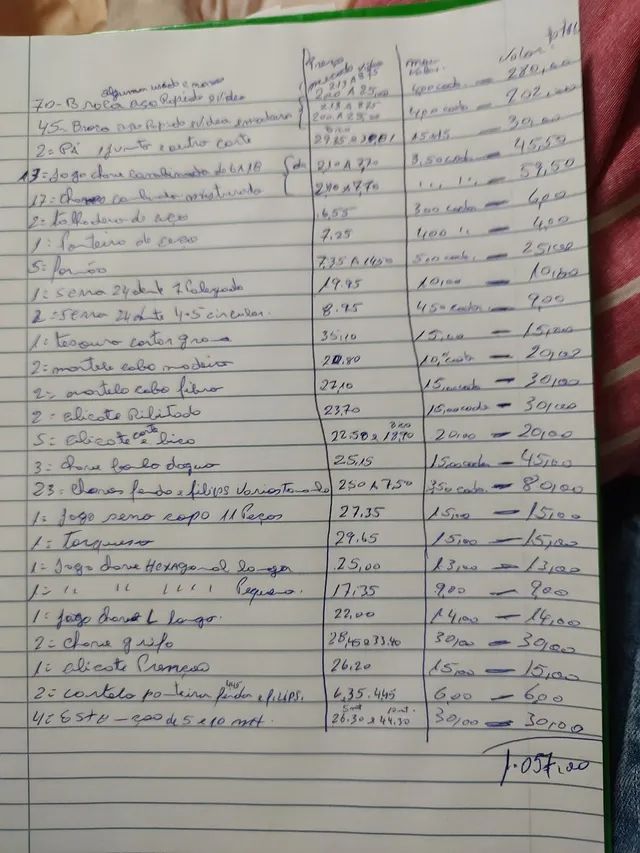 total
Preço mercado livre meu valor. valor.
algumas usado e novas
70- Broca aço Rapido vídea 2,13 A 8,75 200 A 25,00 4,00 cada - 280,00
45- Broca aço Rapido vídea 2,13 A 8,75 200 A 25,00 4,00 cada - 702,00
2= Pá 15,15 - 30,00
17= Jogo chave combinada do 6 A 18 2,10 A 7,70 3,50 cada - 45,50
17= chaves combinada misturado 2,90 A 7,70 " " - 59,50
2= talhadeira de aço 6,55 300 cada - 6,00
1= Ponteiro de aço 7.25 400 " - 4,00
5= formão 7,35 A 14,50 5,00 cada - 25,00
1= serra 24 dente 7 Polegada 19.95 10,00 - 10,00
2= serra 24 dente 4.5 circular. 8.95 450 cada - 9,00
1= tesoura cortar grama 35,10 15,00 - 15,00
2= martelo cabo madeira 20.80 10,00 cada - 20,00
2= martelo cabo fibra 27,10 15,00 cada - 30,00
2= alicate Rebitado 23,70 15,00 cada - 30,00
5= alicate corte e bico 22.50 e bico 18,90 20,00 - 20,00
3= chave 25,15 15,00 cada - 45,00
23= chaves fenda e filips varios tamanho 2,50 A 7,50 3,50 cada - 80,00
1= Jogo serra copo 11 Peças 27.35 15,00 - 15,00
1= Torquesa 29.65 15,00 - 15,00
1= Jogo chave Hexagonal longa 25,00 13,00 - 13,00
1= " " " " Pequena. 17,35 9,00 - 9,00
1= Jogo chave L longo. 22,00 14,00 - 14,00
2= chave grifo 28,45 e 33.40 30,00 - 30,00
1= alicate Pressão 26.20 15,00 - 15,00
2= ponteira fenda e filips. 6,35. 4,45 6,00 - 6,00
4= 5 e 10 mt. 5 mt 26.30 e 10 mt. 44.30 30,00 - 30,00
1.057,00